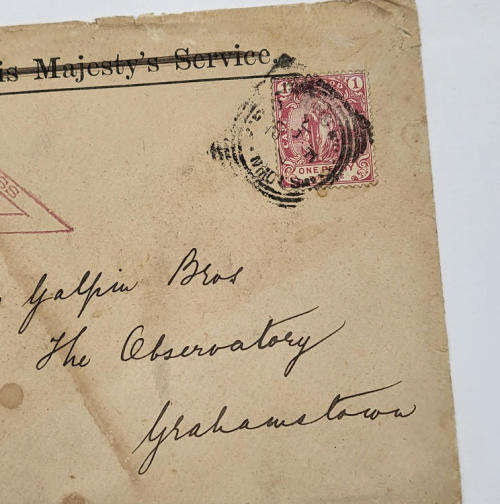 is Majesty's Service
1 1
ONE PE
SS
Galpin Bros
The Observatory
Grahamstown